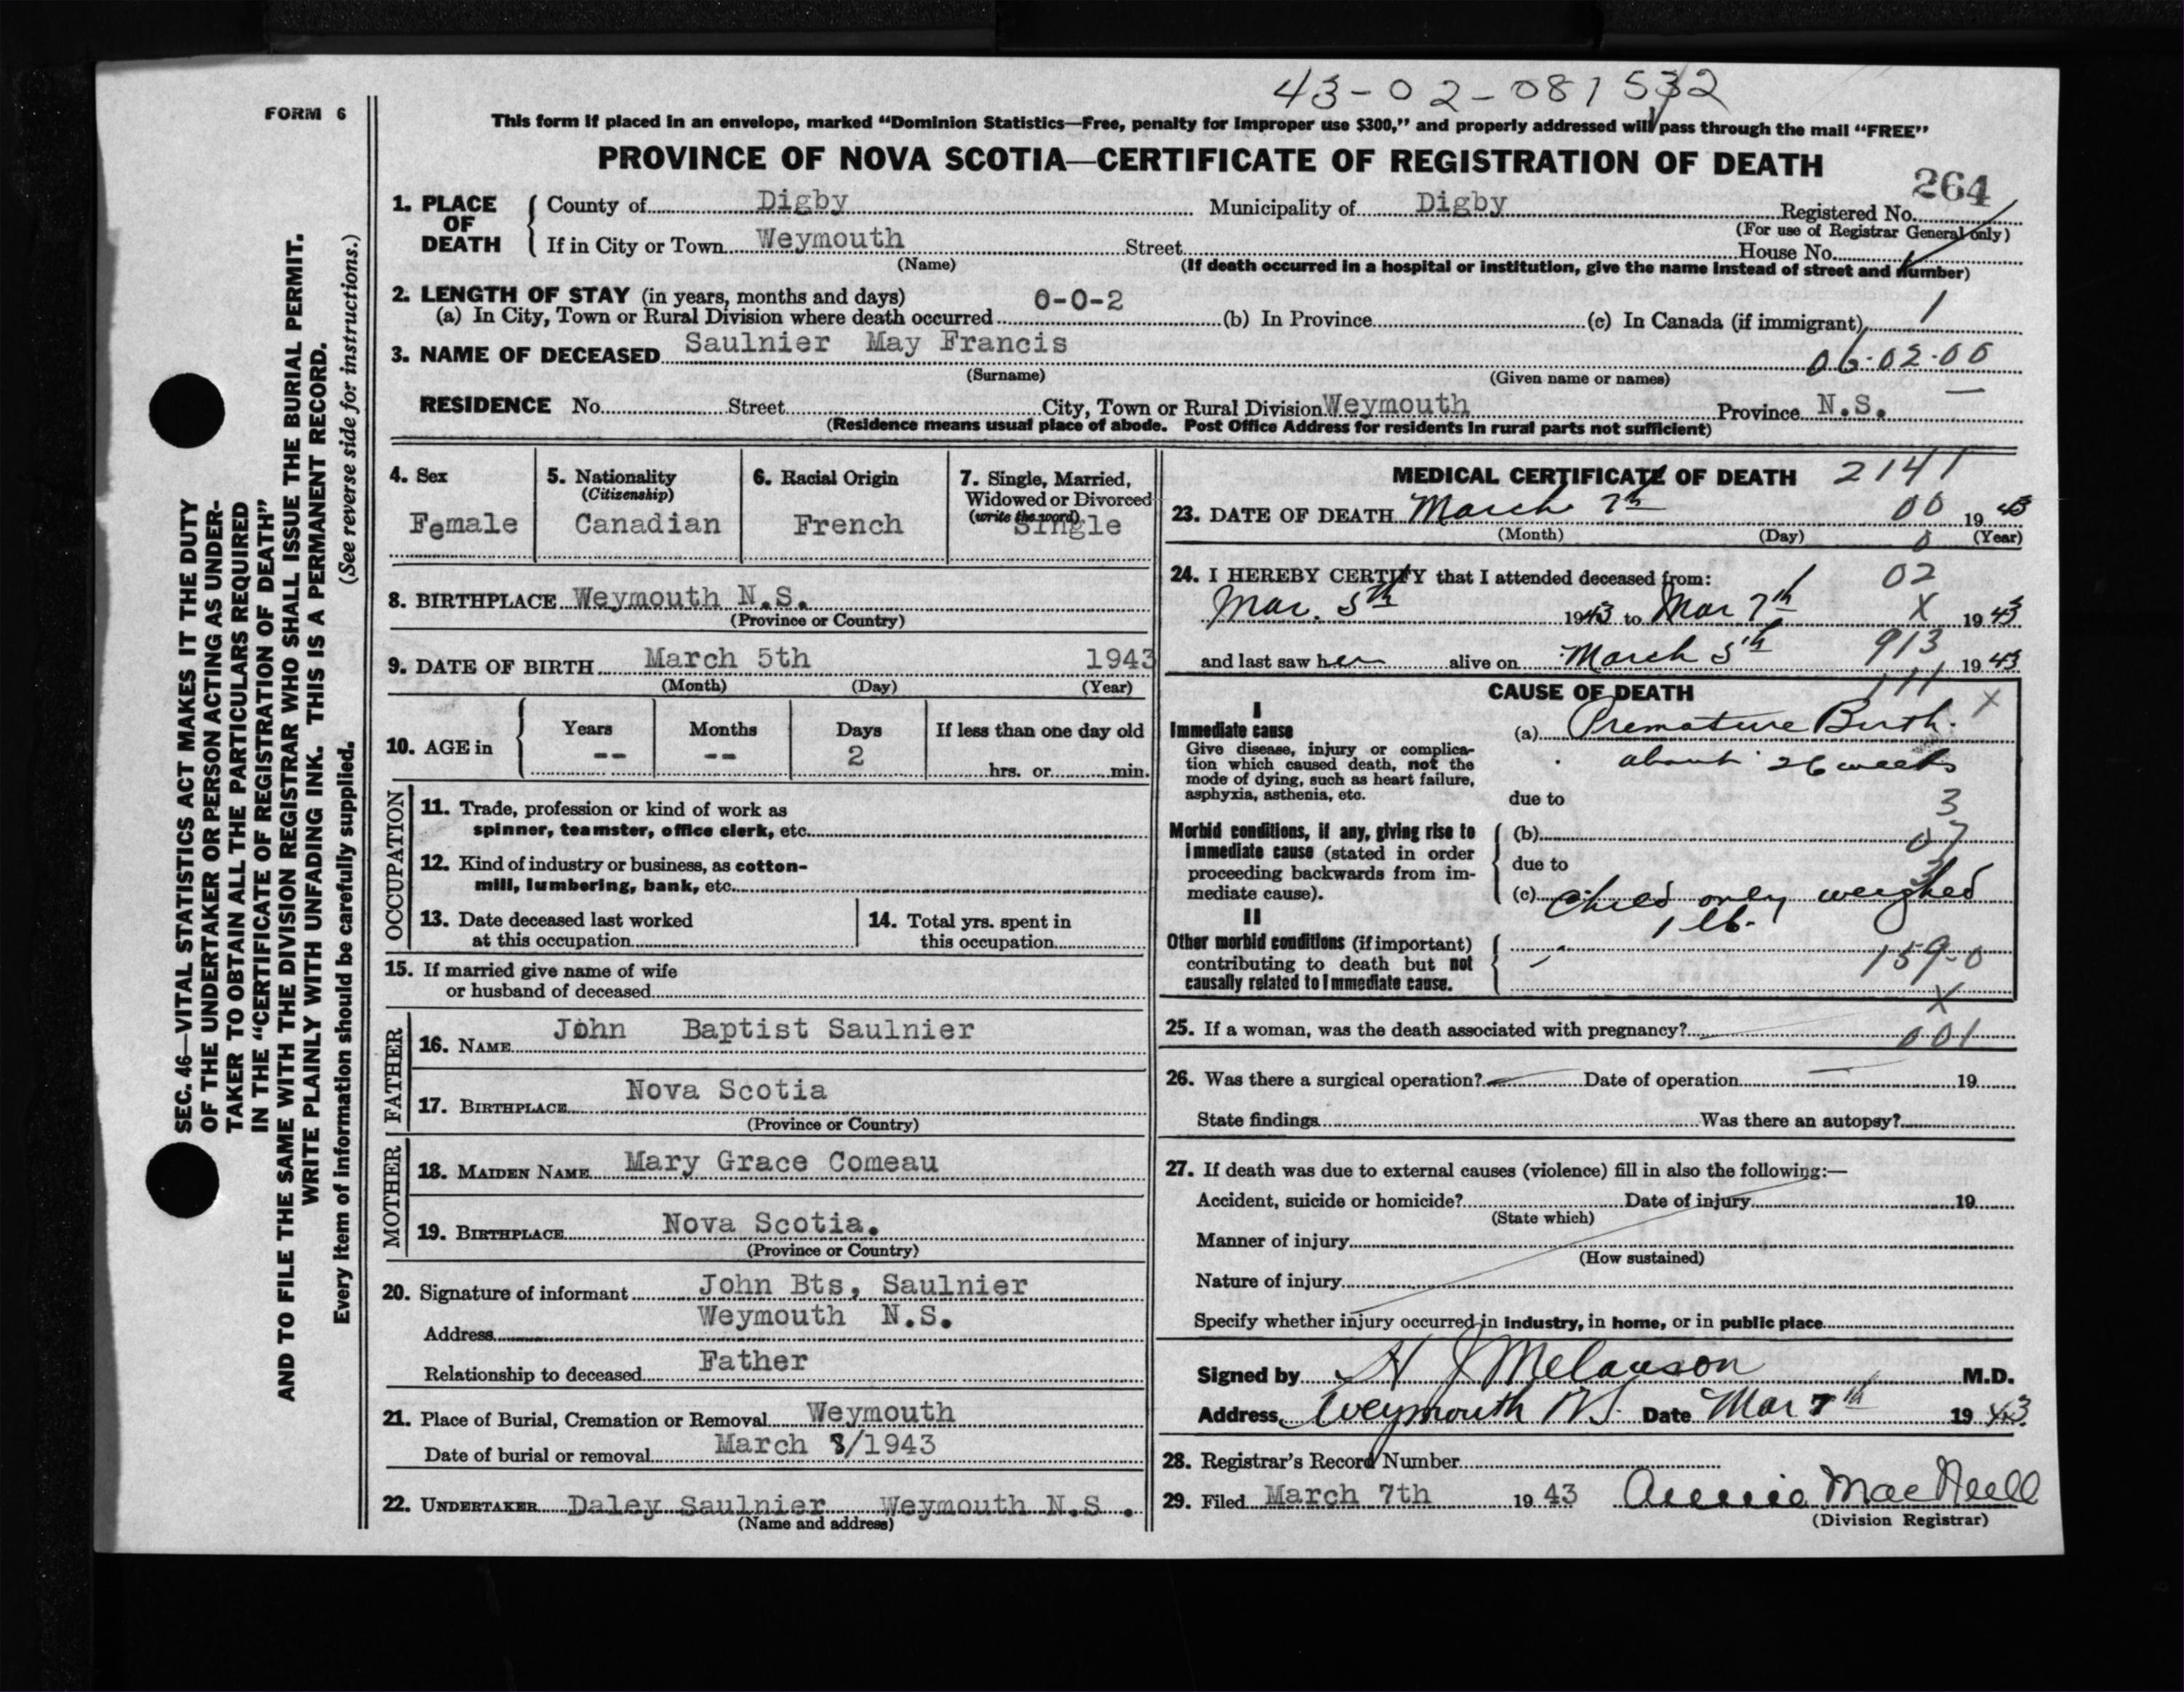 43-02-081532
FORM 6
This form if placed in an envelope, marked "Dominion Statistics—Free, penalty for improper use $300," and properly addressed will pass through the mail "FREE"
PROVINCE OF NOVA SCOTIA—CERTIFICATE OF REGISTRATION OF DEATH
264
SEC. 46—VITAL STATISTICS ACT MAKES IT THE DUTY
OF THE UNDERTAKER OR PERSON ACTING AS UNDER-
TAKER TO OBTAIN ALL THE PARTICULARS REQUIRED
IN THE "CERTIFICATE OF REGISTRATION OF DEATH"
AND TO FILE THE SAME WITH THE DIVISION REGISTRAR WHO SHALL ISSUE THE BURIAL PERMIT.
WRITE PLAINLY WITH UNFADING INK. THIS IS A PERMANENT RECORD.
Every item of information should be carefully supplied. (See reverse side for instructions.)
1. PLACE OF DEATH
County of Digby Municipality of Digby Registered No.
(For use of Registrar General only)
If in City or Town Weymouth Street House No.
(Name) (If death occurred in a hospital or institution, give the name instead of street and number)
2. LENGTH OF STAY (in years, months and days)
(a) In City, Town or Rural Division where death occurred 0-0-2 (b) In Province (c) In Canada (if immigrant) 1
3. NAME OF DECEASED Saulnier May Francis 06-02-00
(Surname) (Given name or names)
RESIDENCE No. Street City, Town or Rural Division Weymouth Province N.S.
(Residence means usual place of abode. Post Office Address for residents in rural parts not sufficient)
4. Sex
Female
5. Nationality
(Citizenship)
Canadian
6. Racial Origin
French
7. Single, Married,
Widowed or Divorced
(write the word)
Single
8. BIRTHPLACE Weymouth N.S.
(Province or Country)
9. DATE OF BIRTH March 5th 1943
(Month) (Day) (Year)
10. AGE in
Years Months Days If less than one day old
-- -- 2
hrs. or min.
OCCUPATION
11. Trade, profession or kind of work as
spinner, teamster, office clerk, etc.
12. Kind of industry or business, as cotton-
mill, lumbering, bank, etc.
13. Date deceased last worked
at this occupation
14. Total yrs. spent in
this occupation
15. If married give name of wife
or husband of deceased
FATHER
16. NAME John Baptist Saulnier
17. BIRTHPLACE Nova Scotia
(Province or Country)
MOTHER
18. MAIDEN NAME Mary Grace Comeau
19. BIRTHPLACE Nova Scotia.
(Province or Country)
20. Signature of informant John Bts, Saulnier
Address Weymouth N.S.
Relationship to deceased Father
21. Place of Burial, Cremation or Removal Weymouth
Date of burial or removal March 8/1943
22. UNDERTAKER Daley Saulnier Weymouth N.S.
(Name and address)
MEDICAL CERTIFICATE OF DEATH 2141
23. DATE OF DEATH March 7th 00 1943
(Month) (Day) 0 (Year)
24. I HEREBY CERTIFY that I attended deceased from: 02
Mar. 5th 1943 to Mar 7th X 1943
and last saw her alive on March 5th 913 1943
CAUSE OF DEATH 111 X
I
Immediate cause
Give disease, injury or complica-
tion which caused death, not the
mode of dying, such as heart failure,
asphyxia, asthenia, etc.
(a) Premature Birth.
about 26 weeks
due to 3
Morbid conditions, if any, giving rise to
immediate cause (stated in order
proceeding backwards from im-
mediate cause).
(b) 07
due to 3
(c) child only weighed
1 lb.
II
Other morbid conditions (if important)
contributing to death but not
causally related to immediate cause.
159-0
X
25. If a woman, was the death associated with pregnancy? 001
26. Was there a surgical operation? Date of operation 19
State findings Was there an autopsy?
27. If death was due to external causes (violence) fill in also the following:—
Accident, suicide or homicide? Date of injury 19
(State which)
Manner of injury
(How sustained)
Nature of injury
Specify whether injury occurred in industry, in home, or in public place
Signed by H J Melanson M.D.
Address Weymouth NS. Date Mar 7th 1943.
28. Registrar's Record Number
29. Filed March 7th 1943 Annie MacNeill
(Division Registrar)